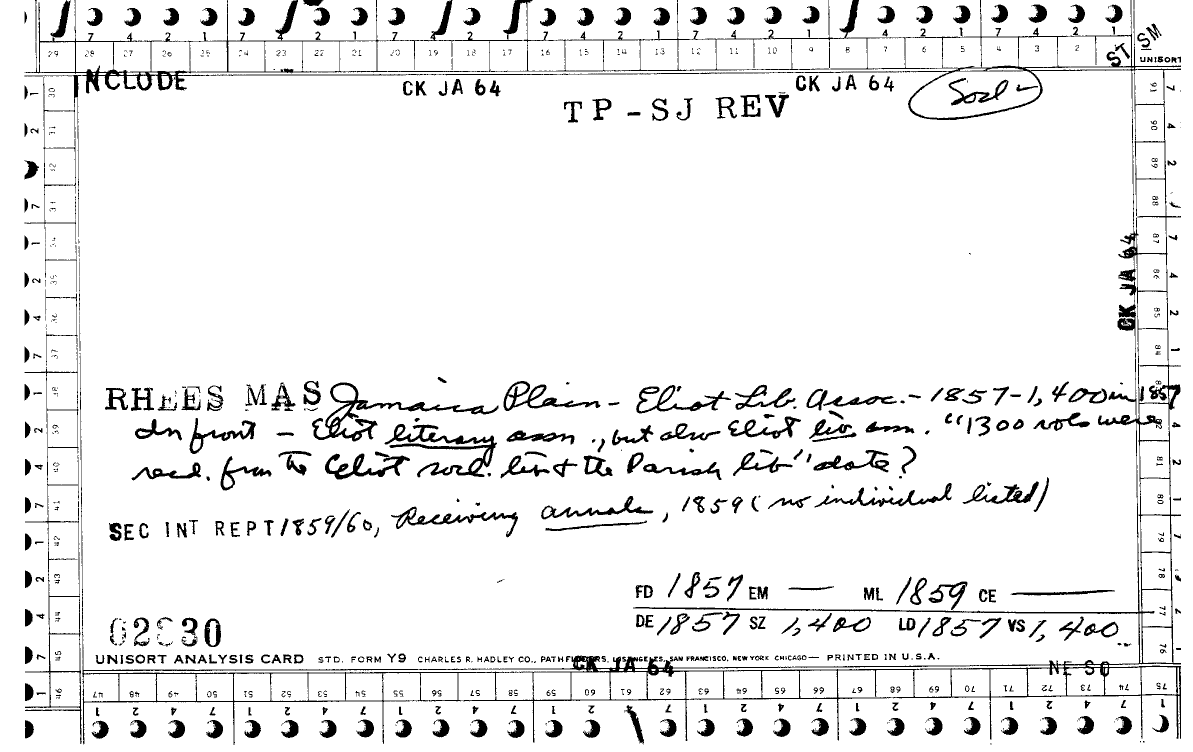 7 4 2 1 7 4 2 1 7 4 2 1 7 4 2 1 7 4 2 1 7 4 2 1 7 4 2 1
29 28 27 26 25 24 23 22 21 20 19 18 17 16 15 14 13 12 11 10 9 8 7 6 5 4 3 2 ST SM
UNISORT
INCLUDE CK JA 64 CK JA 64 Socl -
TP - SJ REV
CK JA 64
RHEES MAS Jamaica Plain - Eliot Lib. Assoc. - 1857 - 1,400 in 1857
In front - Eliot literary assn., but also Eliot lib assn. "1300 vols were
recd. from the Eliot socl. lib & the Parish lib" date?
SEC INT REPT 1859/60, Receiving annals, 1859 (no individual listed)
FD 1857 EM — ML 1859 CE —
DE 1857 SZ 1,400 LD 1857 VS 1,400
02830
UNISORT ANALYSIS CARD STD. FORM Y9 CHARLES R. HADLEY CO., PATHFINDERS, LOS ANGELES, SAN FRANCISCO, NEW YORK CHICAGO — PRINTED IN U.S.A.
CK JA 64 NE SO
46 47 48 49 50 51 52 53 54 55 56 57 58 59 60 61 62 63 64 65 66 67 68 69 70 71 72 73 74 75
1 1 2 4 7 1 2 4 7 1 2 4 7 1 2 4 7 1 2 4 7 1 2 4 7 1 2 4 7 1